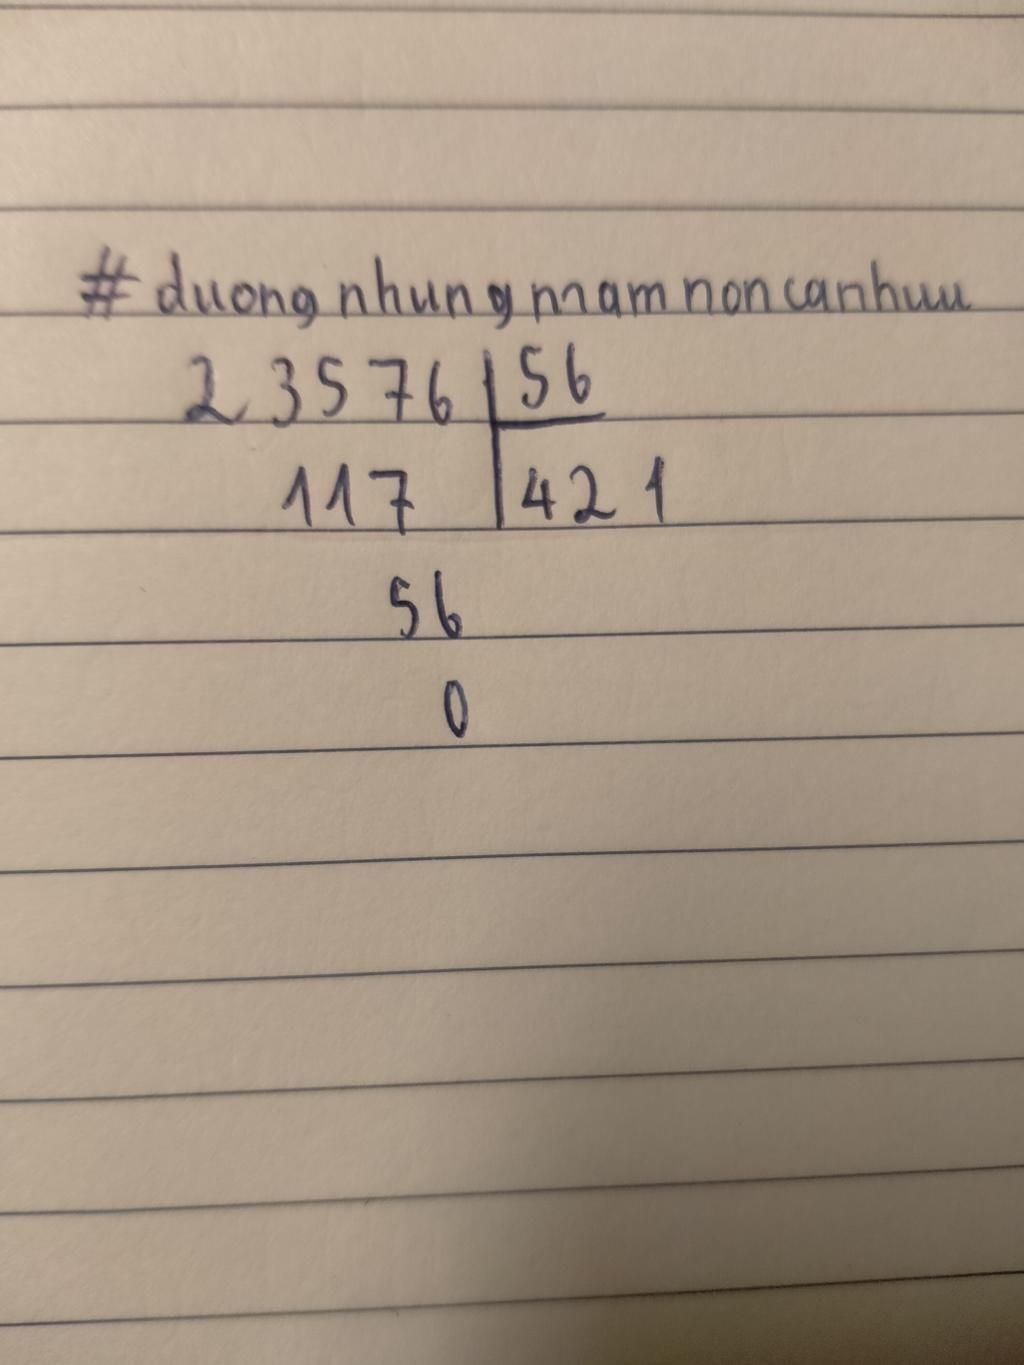 # duongnhungmamnoncanhuu
23576 | 56
117 | 421
56
0